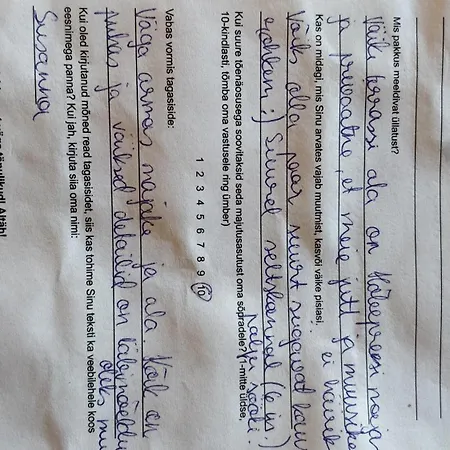 Mis pakkus meeldivat üllatust?
Väike terrassi ala on
ja privaatne, et meie jutt ja muusika
ei
Kas on midagi, mis Sinu arvates vajab muutmist, kasvõi väike pisiasi.
Võiks olla paar suurt sügavat
rohkem :) Suurel seltskonnal (6 in.)
palju
Kui suure tõenäosusega soovitaksid seda majutusasutust oma sõpradele? (1-mitte üldse,
10-kindlasti, tõmba oma vastusele ring ümber)
1 2 3 4 5 6 7 8 9 10
Vabas vormis tagasiside:
Väga armas majake ja ala. Kõik on
puhas ja väiksed detailid on
Kui oled kirjutanud mõned read tagasisidet, siis kas tohime Sinu teksti ka veebilehele koos
eesnimega panna? Kui jah, kirjuta siia oma nimi:
Susanna
Aitäh!